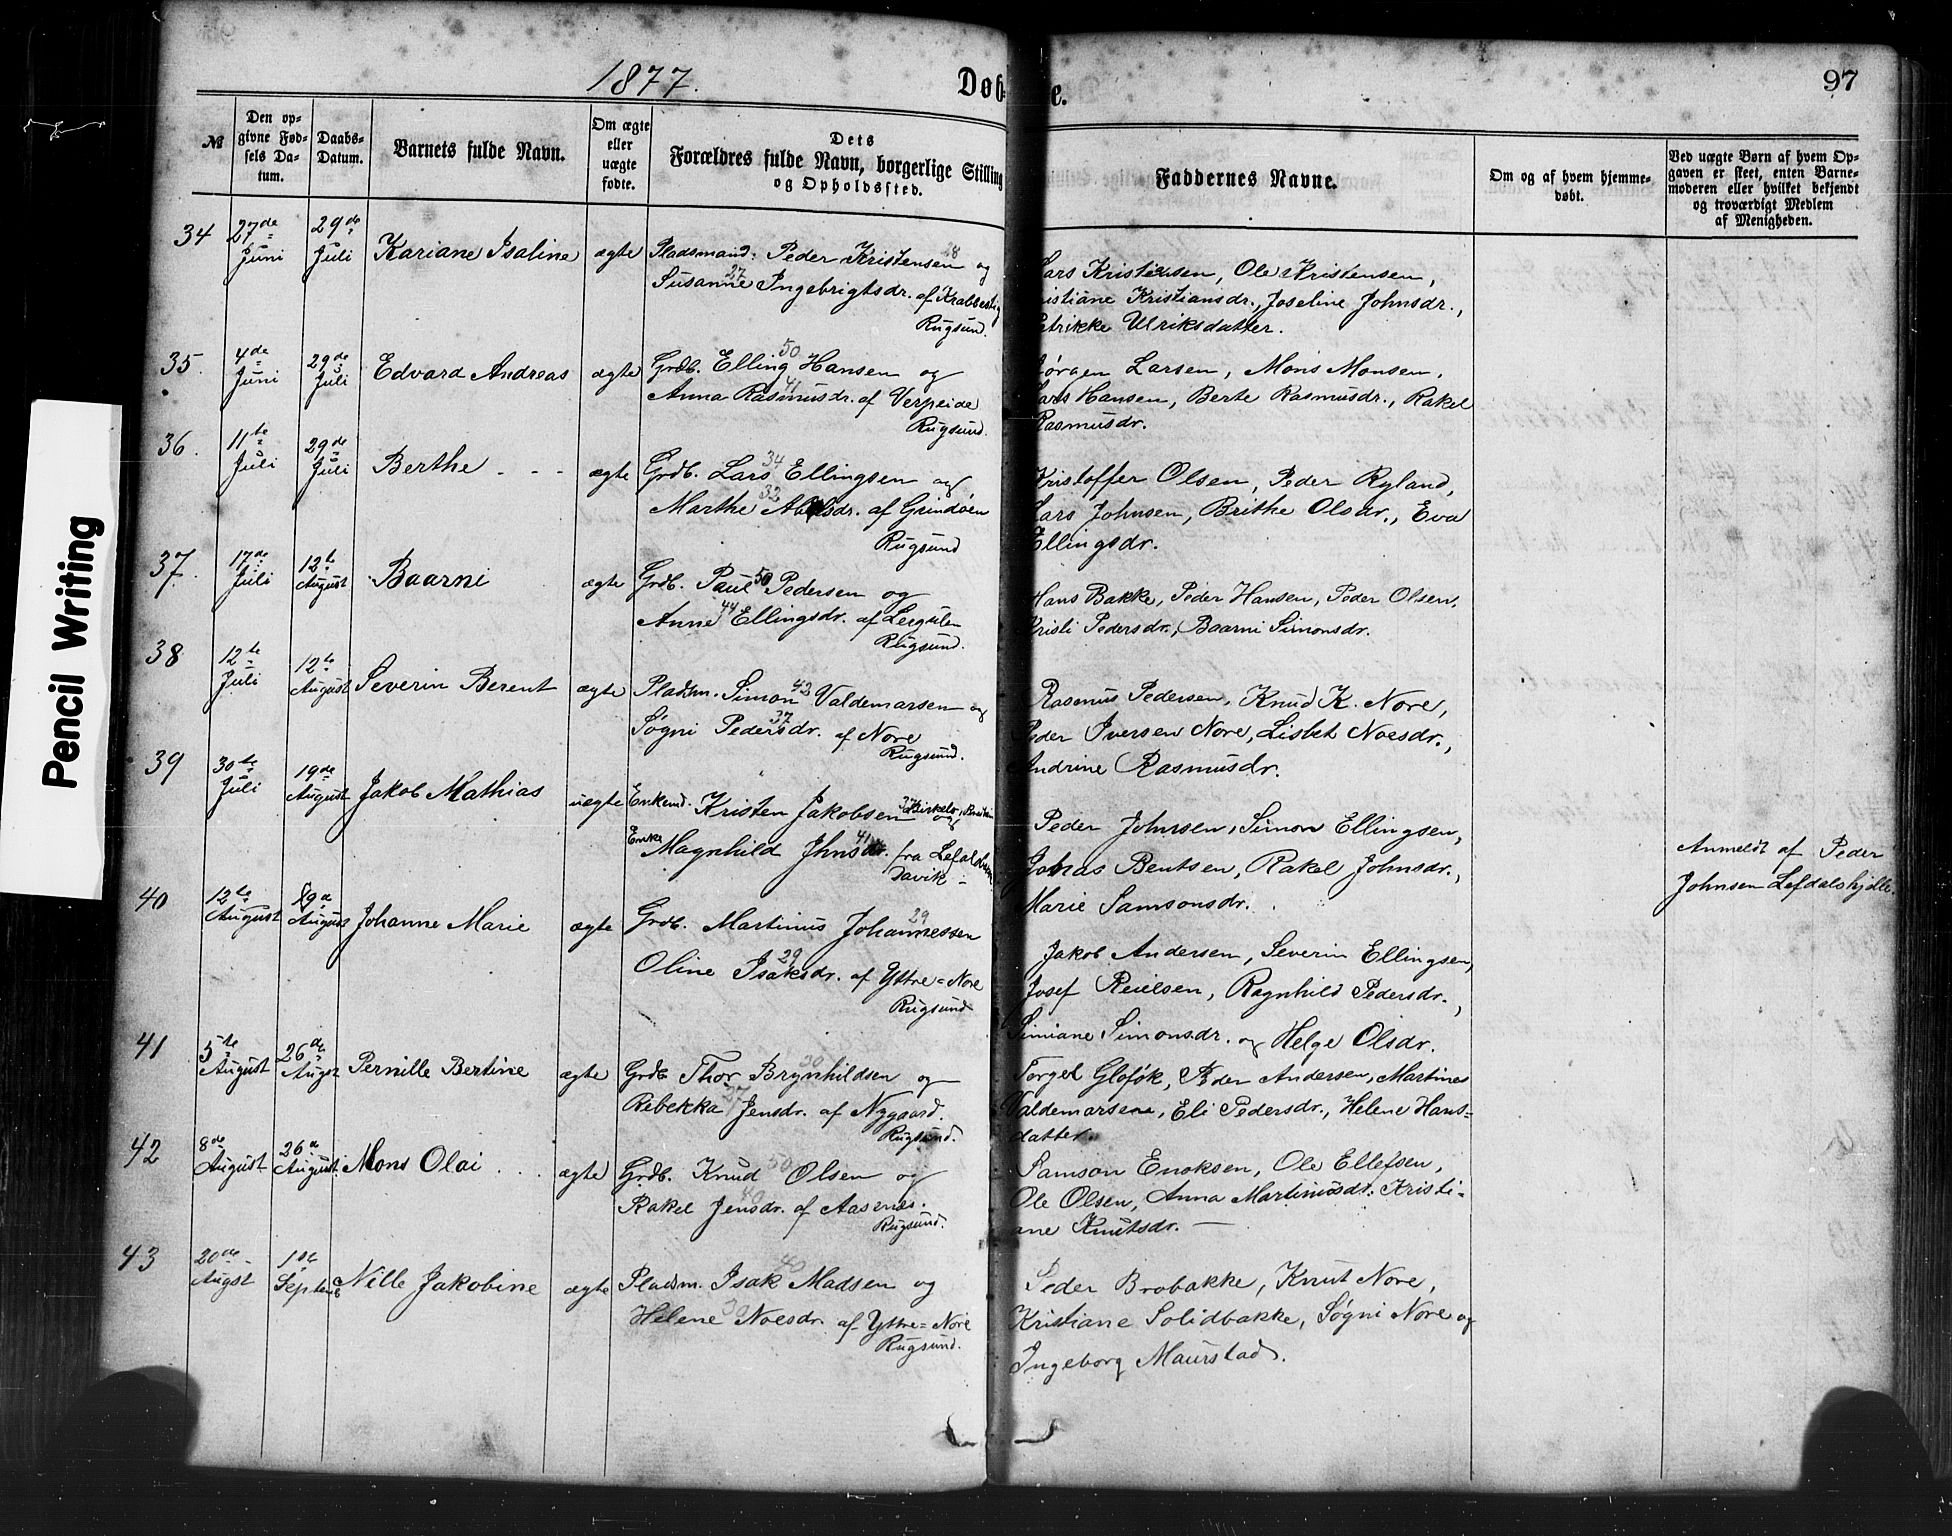 1877.
Døb-
e.
97
№
Den op-
givne Fød-
sels Da-
tum.
Daabs-
Datum.
Barnets fulde Navn.
Om ægte
eller
uægte
fødte.
Dets
Forældres fulde Navn, borgerlige Stilling
og Opholdssted.
Faddernes Navne.
Om og af hvem hjemme-
døbt.
Ved uægte Børn af hvem Op-
gaven er skeet, enten Barne-
moderen eller hvilket bekjendt
og troværdigt Medlem
af Menigheden.
34 27de Juni 29de Juli Kariane Isaline ægte Pladsmand: Peder Kristensen 28 og
Susanne 27 Ingebrigtsdr. af Krabbestig
Rugsund.
Lars Kristensen, Ole Kristensen,
istiane Kristiansdr., Joseline Johnsdr.,
Petrikke Ulriksdatter.
35. 4de Juni 29de Juli Edvard Andreas ægte Grdb. Elling 50 Hansen og
Anna Rasmusdr. 41 af Verpeide
Rugsund.
Jørgen Larsen, Mons Monsen,
Lars Hansen, Berte Rasmusdr., Rakel
Rasmusdr.
36. 11te Juli 29de Juli Berthe - - - ægte Grdb. Lars 34 Ellingsen og
Marthe 32 af Grindøen
Rugsund
Kristoffer Olsen, Peder Ryland,
Lars Johnsen, Brithe Olsdr., Eva
Ellingsdr.
37. 17de Juli 12te August Baarni ægte Grdb. Paul 50 Pedersen og
Anne 44 Ellingsdr. af Leegulen
Rugsund.
Hans Bakke, Peder Hansen, Peder Olsen,
Kristi Pedersdr., Baarni Simonsdr.
38 12te Juli 12te August Severin Berent ægte Pladsm. Simon 42 Valdemarsen og
Søgni Pedersdr. 37 af Nore
Rugsund.
Rasmus Pedersen, Knud K. Nore,
Peder Iversen Nore, Lisbet Noesdr.,
Andrine Rasmusdr.
39 30te Juli 19de August Jakob Mathias uægte Enkemd. Kristen Jakobsen og
Enke Magnhild Jhnsdr. 41 fra
Davik -
Peder Johnsen, Simon Ellingsen,
Johas Bentsen, Rakel Johnsdr.,
Marie Samsonsdr.
Anmeldt af Peder
Johnsen Lefdalshjelle.
40 12te August 19de August Johanne Marie ægte Grdb. Martinus Johannessen 29
Oline Isaksdr. 29 af Yttre=Nore
Rugsund
Jakob Andersen, Severin Ellingsen,
Josef Reielsen, Ragnhild Pedersdr.,
Simiane Simonsdr. og Helge Olsdr.
41 5te August 26de Augst Pernille Bertine ægte Grdb. Thor Brynhildsen 30 og
Rebekka Jensdr. af Nygaard.
Rugsund.
Torgel Gloføk, Peder Andersen, Martines
Valdemarsene, Eli Pedersdr., Helene Hans=
datter.
42 8de August 26de August Mons Olai ægte Grdb. Knud 50 Olsen og
Rakel Jensdr. 40 af Aasenes.
Rugsund.
Samson Enoksen, Ole Ellefsen,
Ole Olsen, Anna Martinusdr. Kristi=
ane Knutsdr. —
43 20de Augst 1ste Septemb Nille Jakobine ægte Pladsm. Isak 40 Madsen og
Helene 30 Noesdr. af Yttre=Nore
Rugsund.
Peder Brobakke, Knut Nore,
Kristiane Solidbakke, Søgni Nore og
Ingeborg Maurstad.
Pencil Writing